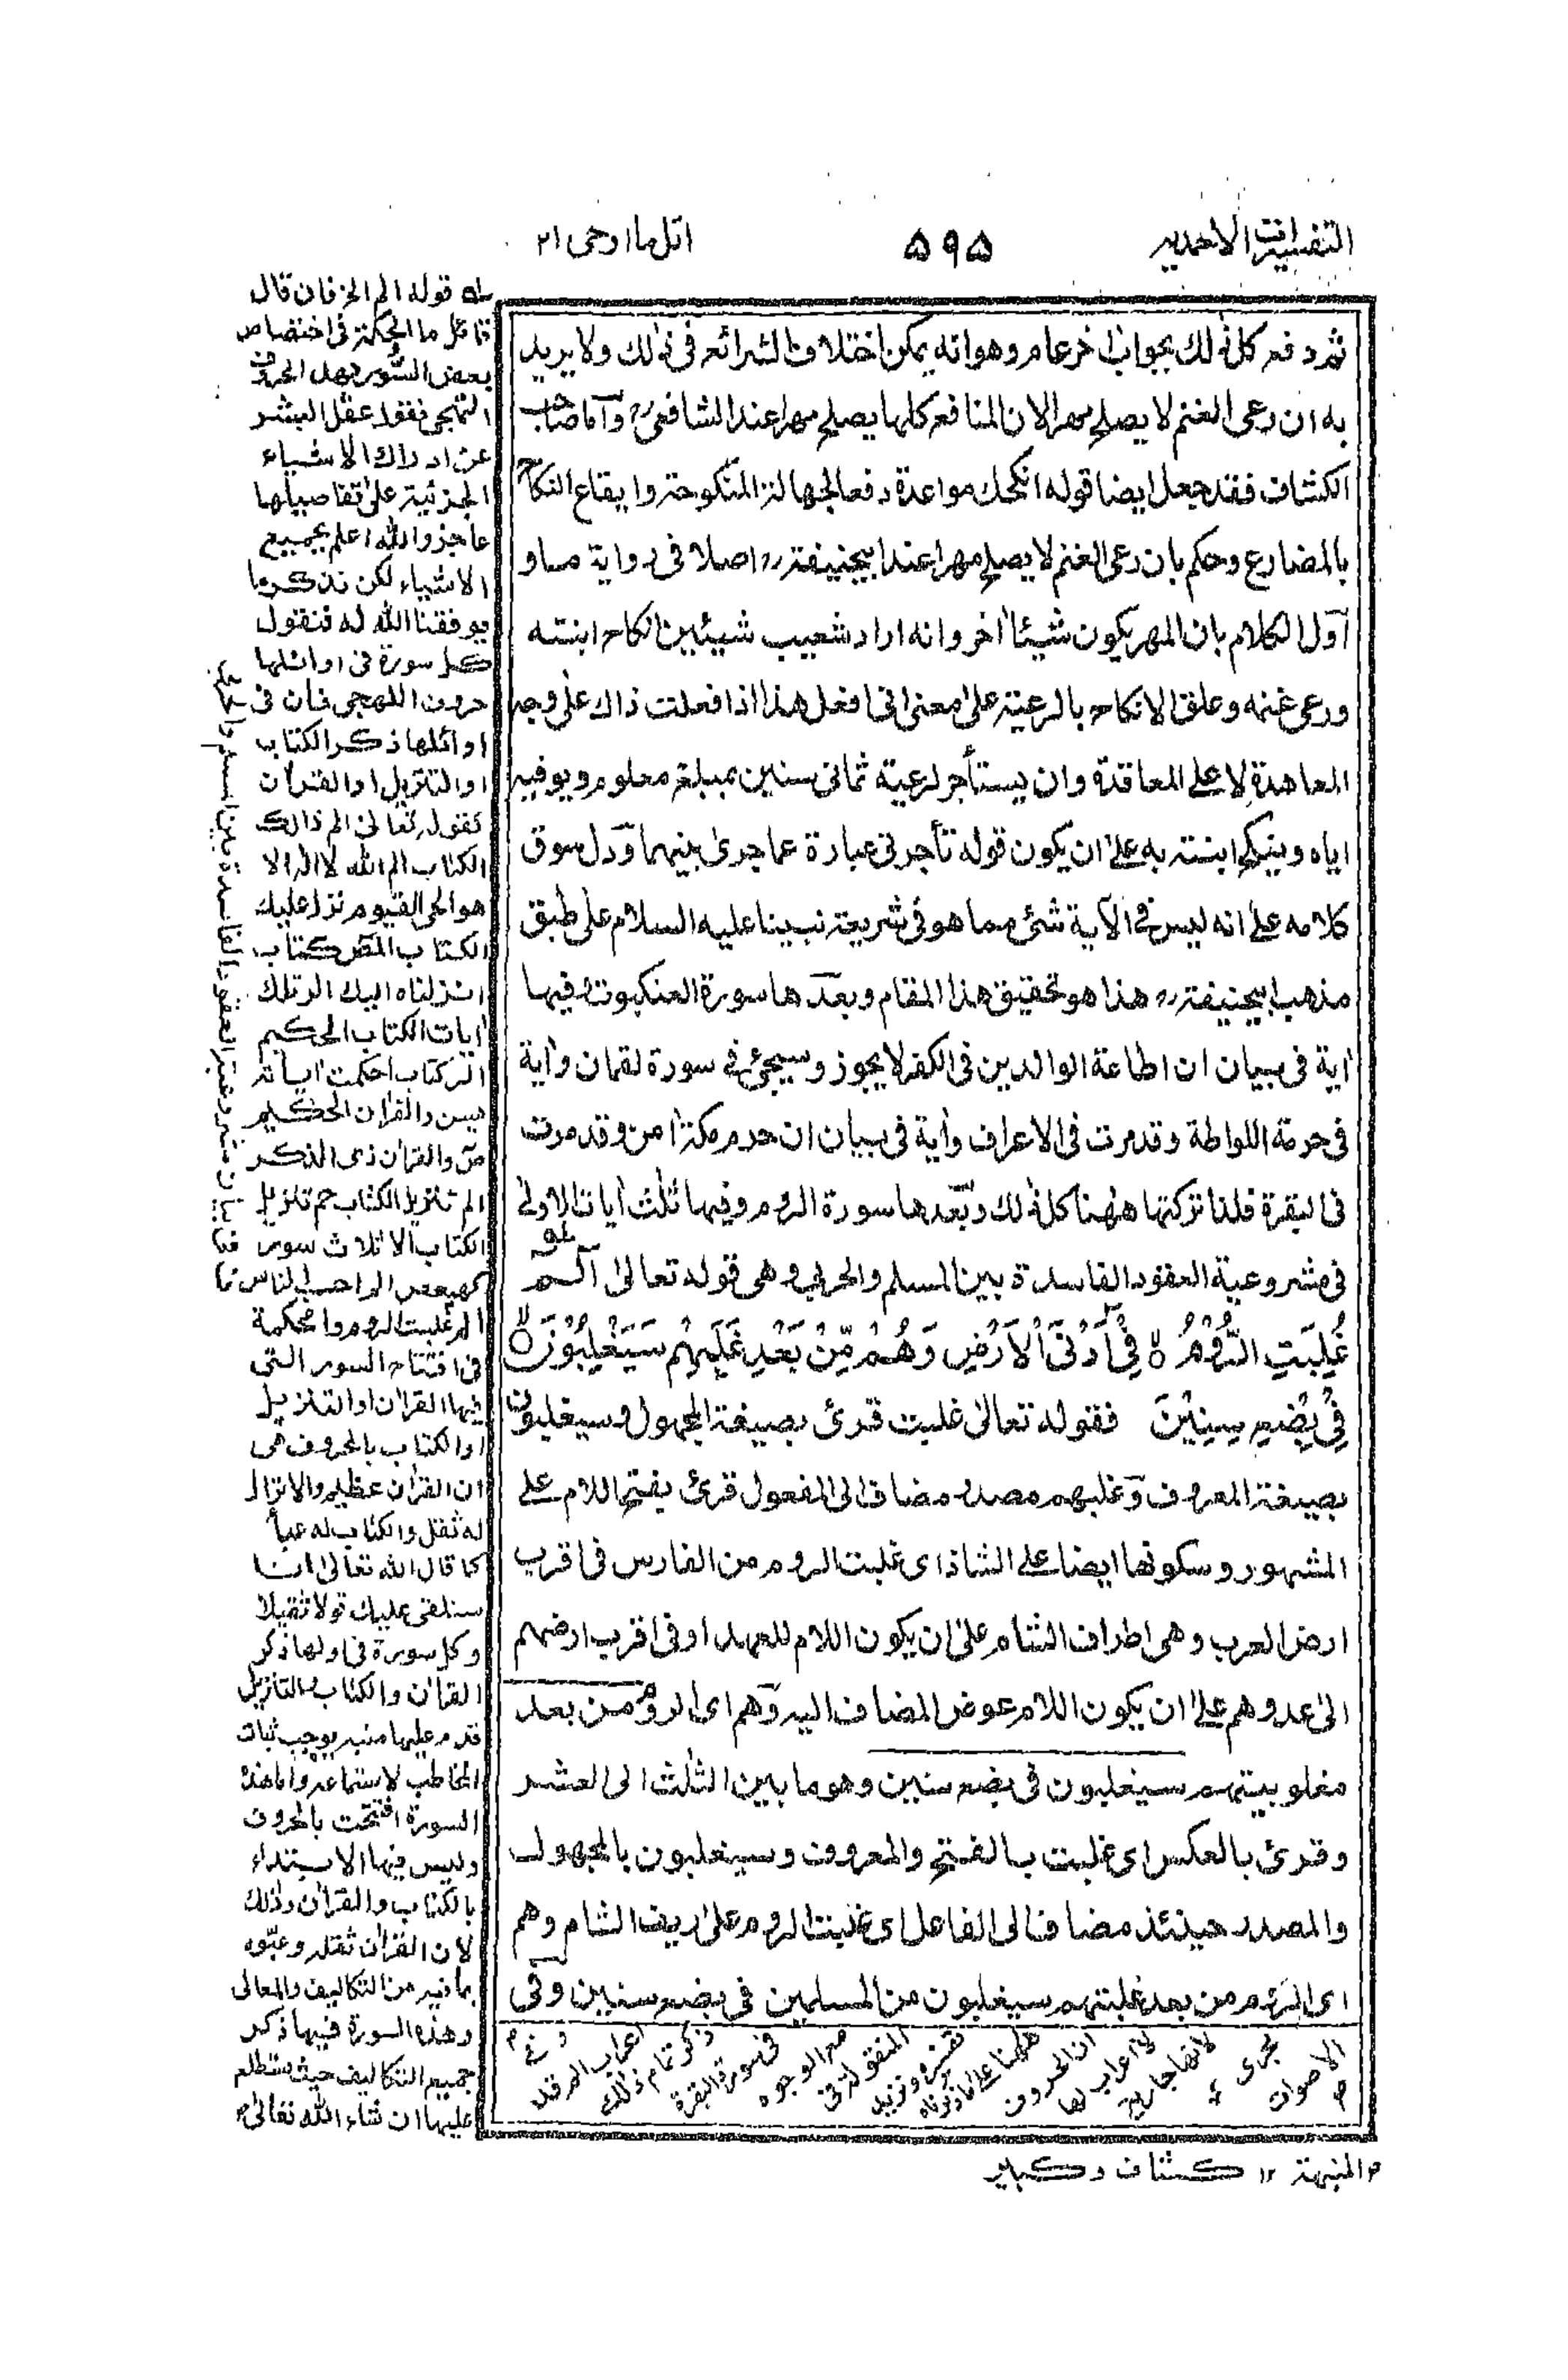 التفسيرات الاحمدية
۵۹۵
اتل ما اوحى ٢١
ثم دفع كل ذٰلك بجواب اٰخر عام وهو انه يمكن اختلاف الشرائع فى ذٰلك ولا يريد
به ان رعى الغنم لا يصلح مهرا لان المنافع كلها يصلح مهرا عند الشافعىؒ وآما صاحب
الكشاف فقد جعل ايضا قوله انكحك مواعدة دفعا لجهالة المنكوحة وايقاع النكاح
بالمضارع وحكم بان رعى الغنم لا يصلح مهرا عند ابيحنيفةرح اصلا فى رواية مــاو
آول الكلام بان المهر يكون شيئا اٰخر وانه اراد شعيب شيئين انكاح ابنته
ورعى غنمه وعلق الانكاح بالرعية على معنى انى افعل هذا اذا فعلت ذاك على وجه
المعاهدة لا على المعاقدة وان يستأجر لرعية ثمانى سنين بمبلغ معلوم ويوفيه
اياه وينكح ابنته به على ان يكون قوله تأجرنى عبارة عما جرى بينهما وّدل سوق
كلامه على انه ليس فى الآية شئ مما هو فى شريعة نبينا عليه السلام على طبق
مذهب ابيحنيفةرح هذا هو تحقيق هذا المقام وبعدها سورة العنكبوت وفيها
اٰية فى بيان ان اطاعة الوالدين فى الكفر لا يجوز وسيجئ فى سورة لقمان واٰية
فى حرمة اللواطة وقد مرت فى الاعراف واٰية فى بيان ان حرم مكة اٰمن وقد مرت
فى البقرة فلذا تركتها هٰهنا كل ذٰلك وبعدها سورة الروم وفيها ثلٰث اٰيات الاولى
فى مشروعية العقود الفاسدة بين المسلم والحربى وهى قوله تعالىٰ الٓـمّٓ
غُلِبَتِ الرُّوْمُ ۙ فِىْٓ اَدْنَى الْاَرْضِ وَهُمْ مِّنْۢ بَعْدِ غَلَبِهِمْ سَيَغْلِبُوْنَ ۙ
فِىْ بِضْعِ سِنِيْنَ فقوله تعالىٰ غلبت قرئ بصيغة المجهول وسيغلبون
بصيغة المعروف وّغلبهم مصدر مضاف الى المفعول قرئ بفتح اللام على
المشهور وسكونها ايضا على الشاذ اى غلبت الروم من الفارس فى اقرب
ارض العرب وهى اطراف الشام على ان يكون اللام للعهد او فى اقرب ارضهم
الى عدوهم على ان يكون اللام عوض المضاف اليه وّهم اى الروم مـن بعـد
مغلوبيتهم سيغلبون فى بضع سنين وهو ما بين الثلٰث الى العشر
وقرئ بالعكس اى غلبت بالفتح والمعروف وسيغلبون بالمجهول
والمصدر حينئذ مضاف الى الفاعل اى غلبت الروم على ريف الشام وهم
اى الروم من بعد غلبتهم سيغلبون من المسلمين فى بضع سنين وفى
قوله الم الخ فان قال
قائل ما الحكمة فى اختصاص
بعض السور بهذه الحروف
التهجى فنقول عقل البشر
عن ادراك الاشياء
الجزئية على تفاصيلها
عاجز والله اعلم بجميع
الاشياء لكن نذكر ما
يوفقنا الله له فنقول
كل سورة فى اوائلها
حروف التهجى فان فى
اوائلها ذكر الكتاب
او التنزيل او القراٰن
كقوله تعالى الم ذالك
الكتاب الم الله لا اله الا
هو الحى القيوم نزل عليك
الكتاب المص كتاب
انزلناه اليك الر تلك
اٰيات الكتاب الحكيم
الر كتاب احكمت اٰياته
يس والقراٰن الحكيم
صٓ والقراٰن ذى الذكر
الم تنزيل الكتاب حم تنزيل
الكتاب الا ثلاث سور
كهيعص الم احسب الناس
الم غلبت الروم والحكمة
فى افتتاح السور التى
فيها القراٰن او التنزيل
او الكتاب بالحروف هى
ان القراٰن عظيم والانزال
له ثقل والكتاب له عبأ
كما قال الله تعالى انا
سنلقى عليك قولا ثقيلا
وكل سورة فى اولها ذكر
القراٰن والكتاب والتنزيل
قدم عليها منبه يوجب ثبات
المخاطب لاستماعه واما هذه
السورة افتتحت بالحروف
وليس فيها الابتداء
بالكتاب والقراٰن وذلك
لان القراٰن ثقله وعبؤه
بما فيه من التكاليف والمعانى
وهذه السورة فيها ذكر
جميع التكاليف حيث تتطلع
عليها ان شاء الله تعالى
المنبهة ١٢ كشاف وكبير